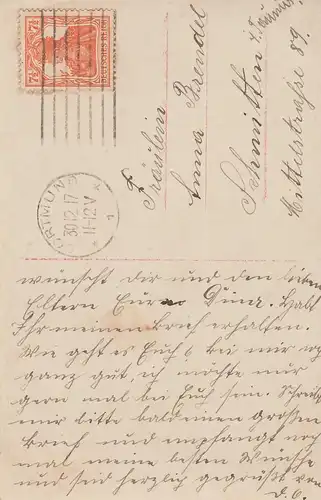 7½ 7½
DEUTSCHES REICH
DORTMUND
30.12.17
11-12V
* 1
Fräulein
Anna Brendel
Schmitten i. Taunus.
Mittelstraße 89.
wünscht Dir und den lieben
Eltern Eure Habt
Ihr meinen Brief erhalten.
Wie geht es Euch bei mir noch
ganz gut, ich möchte nur
gern mal bei Euch sein. Schreib
mir bitte bald einen großen
Brief und empfangt noch
mal meine besten Wünsche
und seid herzlich gegrüßt von
d. O.